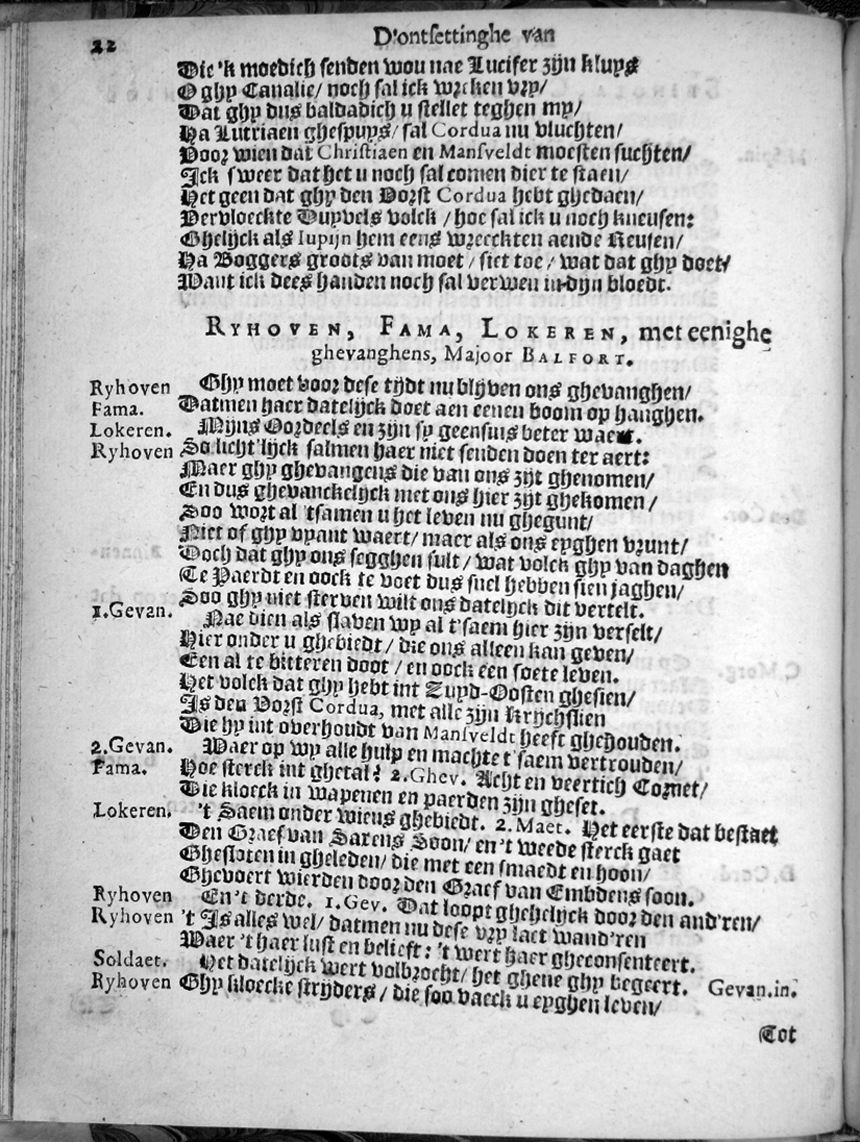 22 D'ontsettinghe van
Die 'k moedich senden wou nae Lucifer zijn kluys
O ghy Canalie/ noch sal ick wreken vry/
Dat ghy dus baldadich u stellet teghen my/
Ha Lutriaen ghespuys/ sal Cordua nu vluchten/
Door wien dat Christiaen en Mansveldt moesten suchten/
Ick sweer dat het u noch sal comen dier te staen/
Het geen dat ghy den Vorst Cordua hebt ghedaen/
Vervloeckte Duyvels volck / hoe sal ick u noch kneusen:
Ghelijck als Iupijn hem eens wreeckten aende Reusen/
Ha Boggers groots van moet / siet toe / wat dat ghy doet/
Want ick dees handen noch sal verwen in dijn bloedt.
RYHOVEN, FAMA, LOKEREN, met eenighe
ghevanghens, Majoor BALFORT.
Ryhoven Ghy moet voor dese tijdt nu blijven ons ghevanghen/
Fama. Datmen haer datelijck doet aen eenen boom op hanghen.
Lokeren. Mijns Oordeels en zijn sy geensins beter waert.
Ryhoven So licht'lijck salmen haer niet senden doen ter aert:
Maer ghy ghevangens die van ons zijt ghenomen/
En dus ghevanckelijck met ons hier zijt ghekomen /
Soo wort al 'tsamen u het leven nu ghegunt/
Niet of ghy vyant waert/ maer als ons eyghen vrunt/
Doch dat ghy ons segghen sult / wat volck ghy van daghen
Te Paerdt en oock te voet dus snel hebben sien jaghen/
Soo ghy niet sterven wilt ons datelijck dit vertelt.
1.Gevan. Nae dien als slaven wy al t'saem hier zijn verselt/
Hier onder u ghebiedt / die ons alleen kan geven/
Een al te bitteren doot / en oock een soete leven.
Het volck dat ghy hebt int Zuyd-Oosten ghesien/
Is den Vorst Cordua, met alle zijn Krijchslien
Die hy int overhoudt van Mansveldt heeft ghehouden.
2.Gevan. Waer op wy alle hulp en machte t'saem vertrouden/
Fama. Hoe sterck int ghetal? 2.Ghev. Acht en veertich Cornet/
Die kloeck in wapenen en paerden zijn gheset.
Lokeren. 't Saem onder wiens ghebiedt. 2.Maet. Het eerste dat bestaet
Den Graef van Sarens Soon/ en 't weede sterck gaet
Ghesloten in gheleden/ die met een smaedt en hoon/
Ghevoert wierden door den Graef van Embdens soon.
Ryhoven En't derde. 1.Gev. Dat loopt ghehelijck door den and'ren/
Ryhoven 't Is alles wel/ datmen nu dese vry laet wand'ren
Waer 't haer lust en belieft: 't wert haer gheconsenteert.
Soldaet. Het datelijck wert volbrocht/ het ghene ghy begeert. Gevan.in.
Ryhoven Ghy kloecke strijders / die soo vaeck u eyghen leven/
Tot